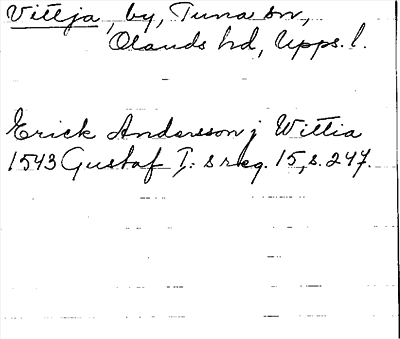 Vittja, by, Tuna sn,
Olands hd, Upps. l.
Erick Andersson j Wittia
1543 Gustaf I: s reg. 15, s. 247.